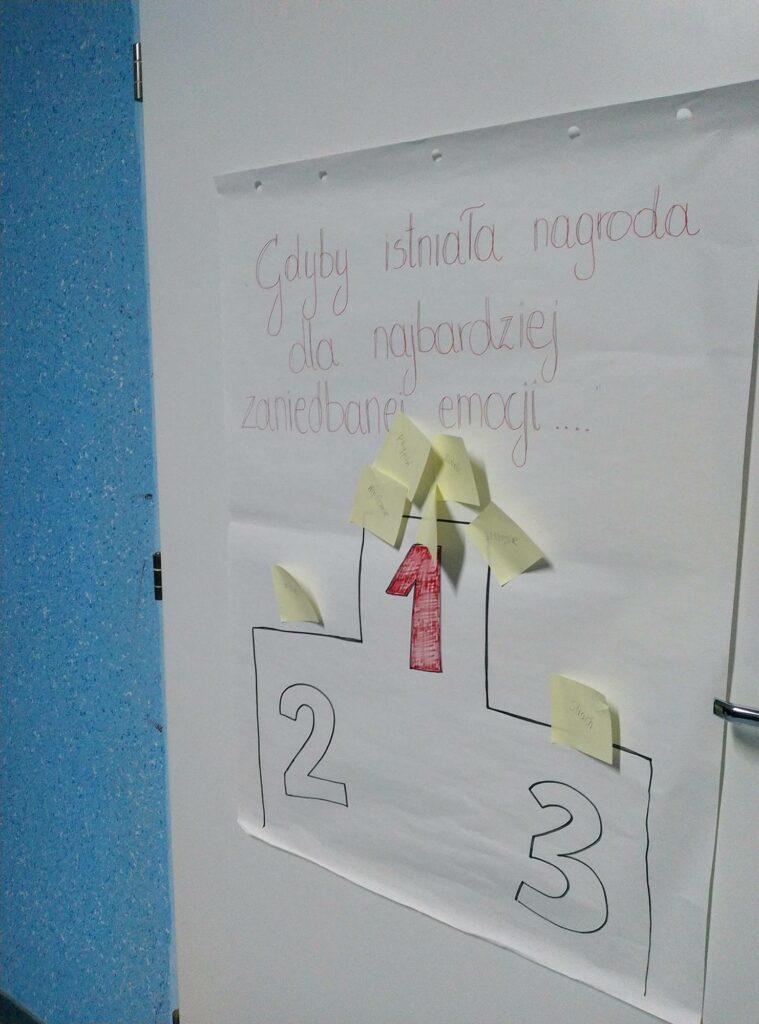 Gdyby istniała nagroda
dla najbardziej
zaniedbanej emocji....
1
2
Strach
3